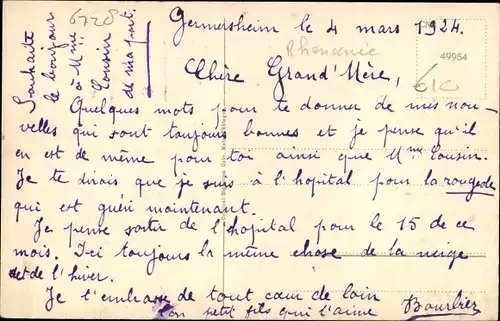 Germersheim le 4 mars 1924.
Rhenanie
6728
49954
Souhaite
le bonjour
à Mme
Cousin
de ma part.
Chère Grand'Mère,
Quelques mots pour te donner de mes nou-
velles qui sont toujours bonnes et je pense qu'il
en est de même pour toi ainsi que Mme Cousin.
Je te dirais que je suis à l'hopital pour la rougeole
qui est guéri maintenant.
Je pense sortir de l'hopital pour le 15 de ce
mois. Ici toujours la même chose de la neige
et de l'hiver.
Je t'embrasse de tout cœur de loin
Ton petit fils qui t'aime